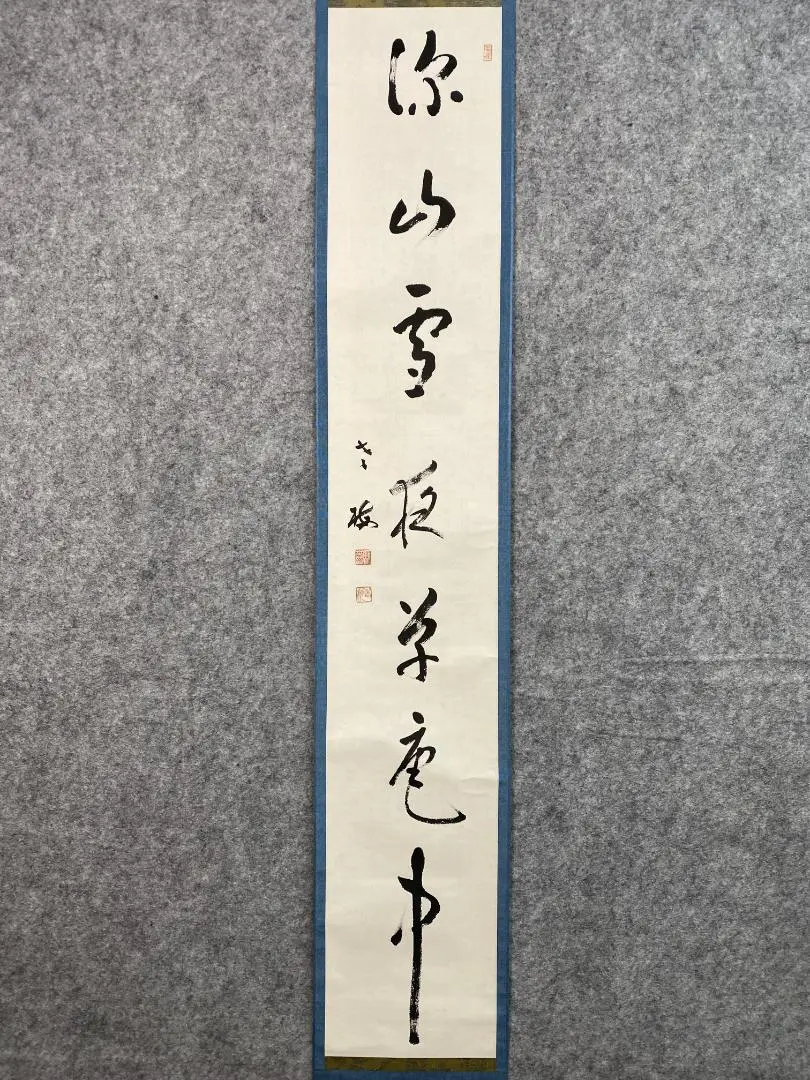 深山雪夜草庵中